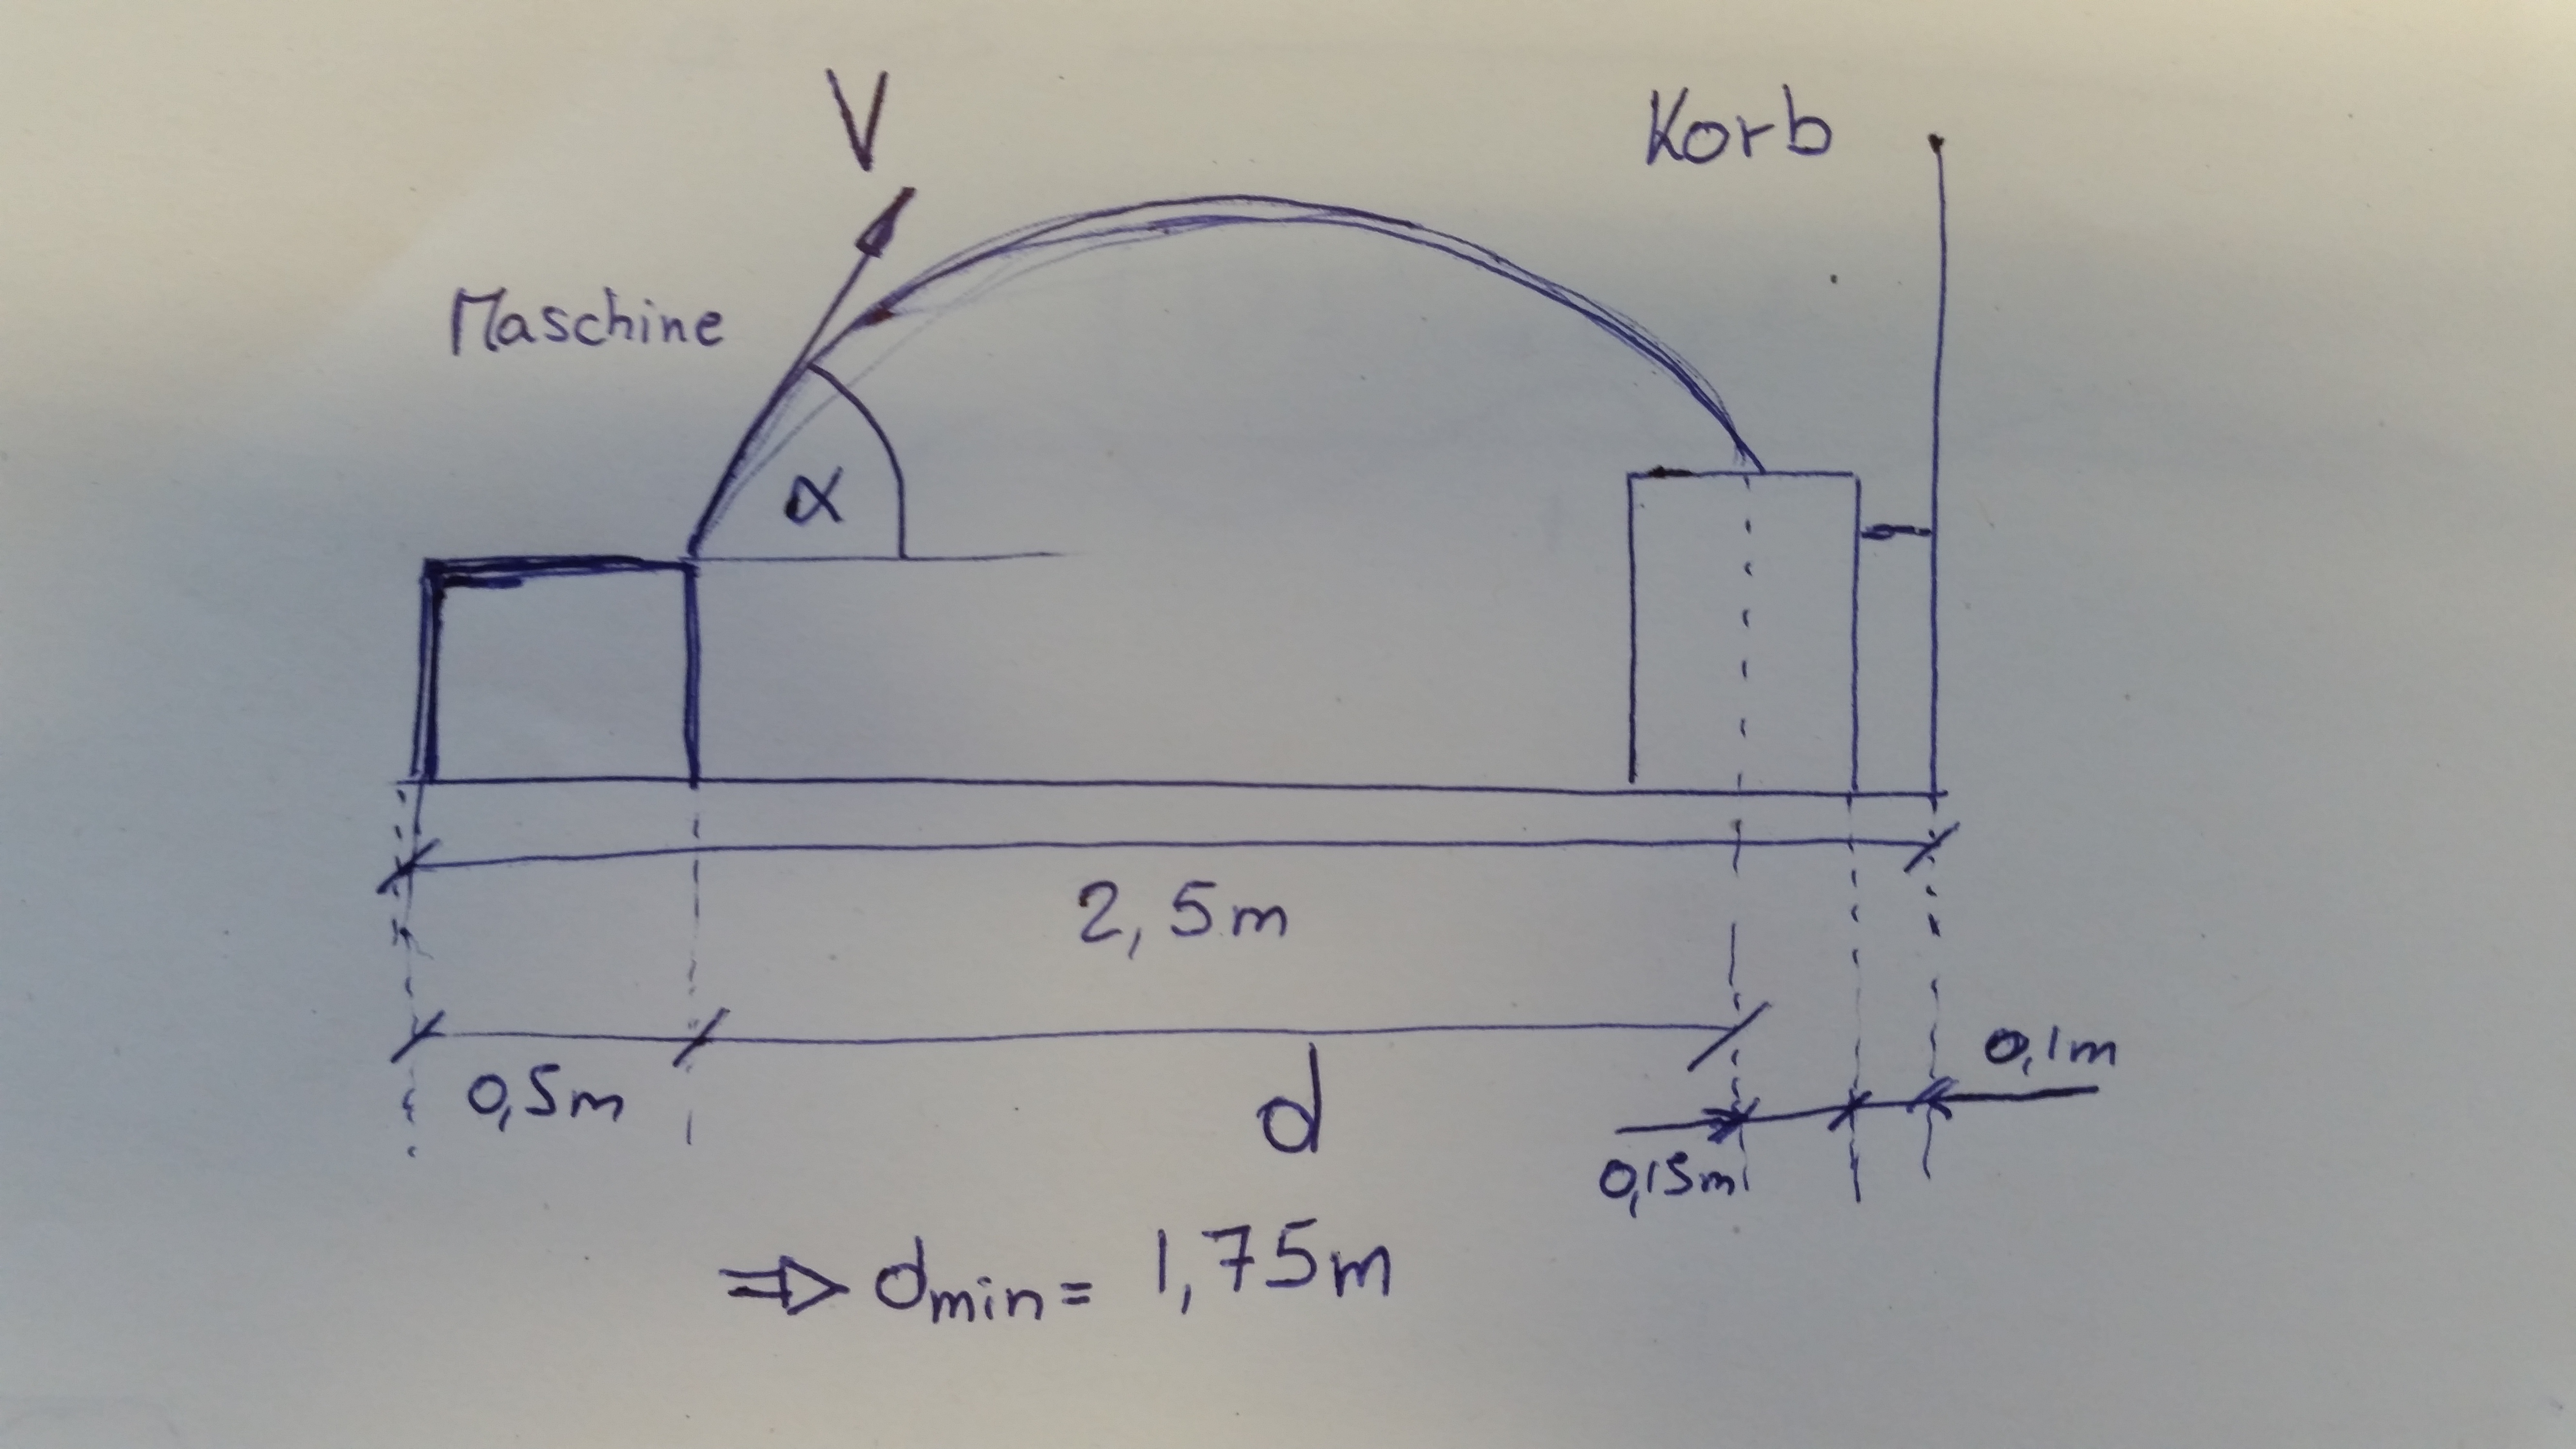 V
Korb
Maschine
α
2,5m
0,1m
0,5m
d
0,15m
⇒ dmin = 1,75m